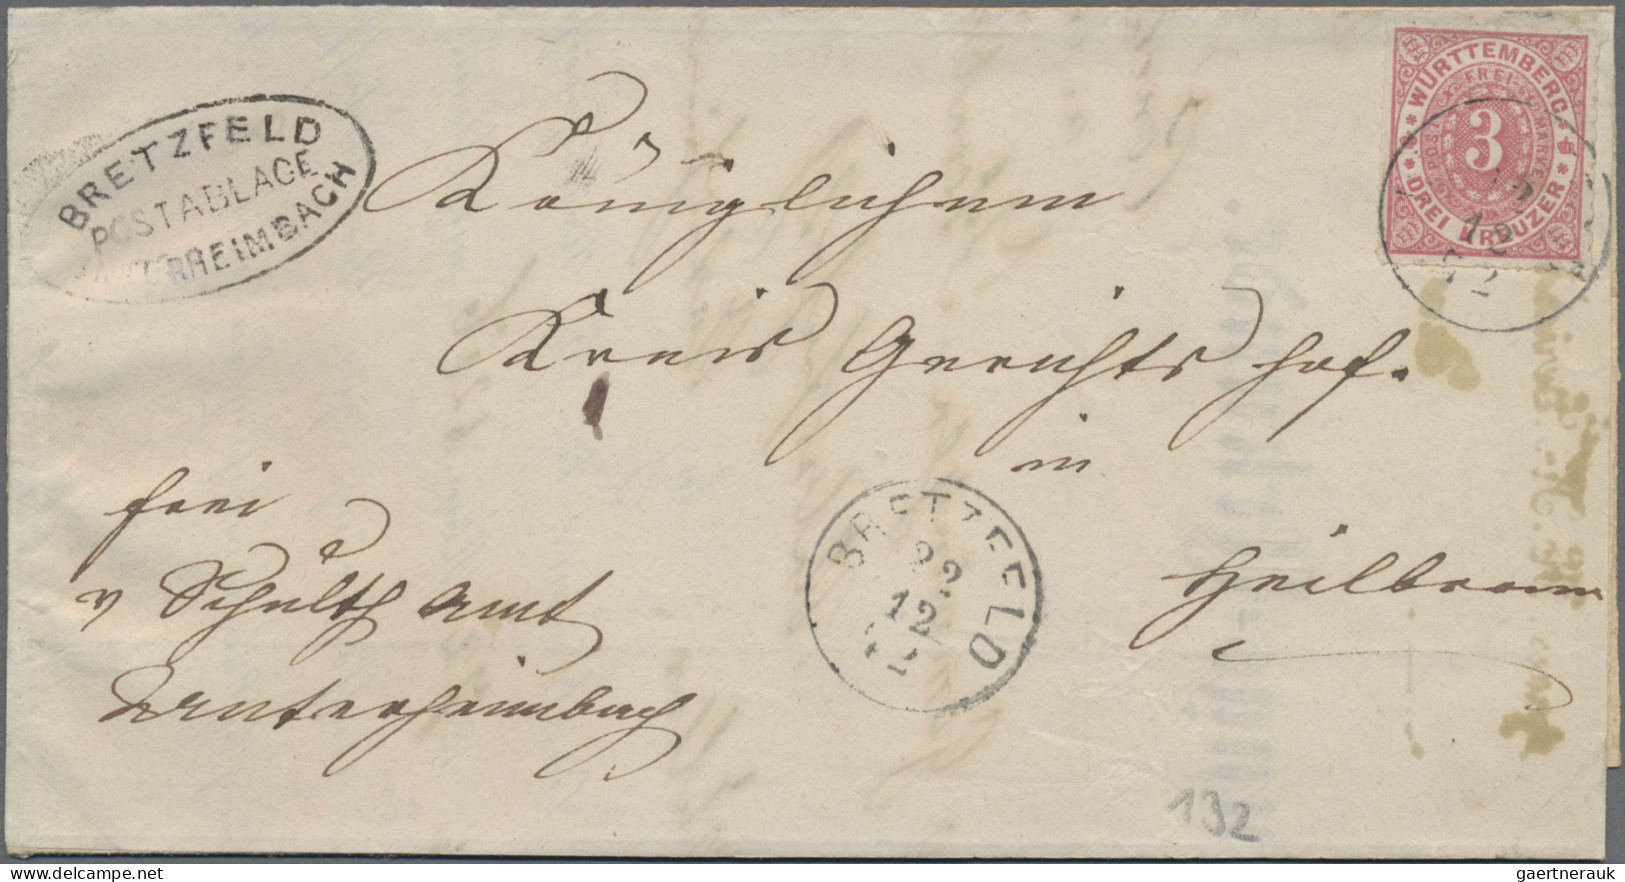 BRETZFELD
POSTABLAGE
UNTERHEIMBACH
WÜRTTEMBERG
FREI
POST MARKE
3
DREI KREUZER
12
72
Königlichem
Kreis Gerichts hof.
in
Heilbronn
frei
v Schulth Amt
Unterheimbach
BRETZFELD
22
12
72
132
gaertnerauk